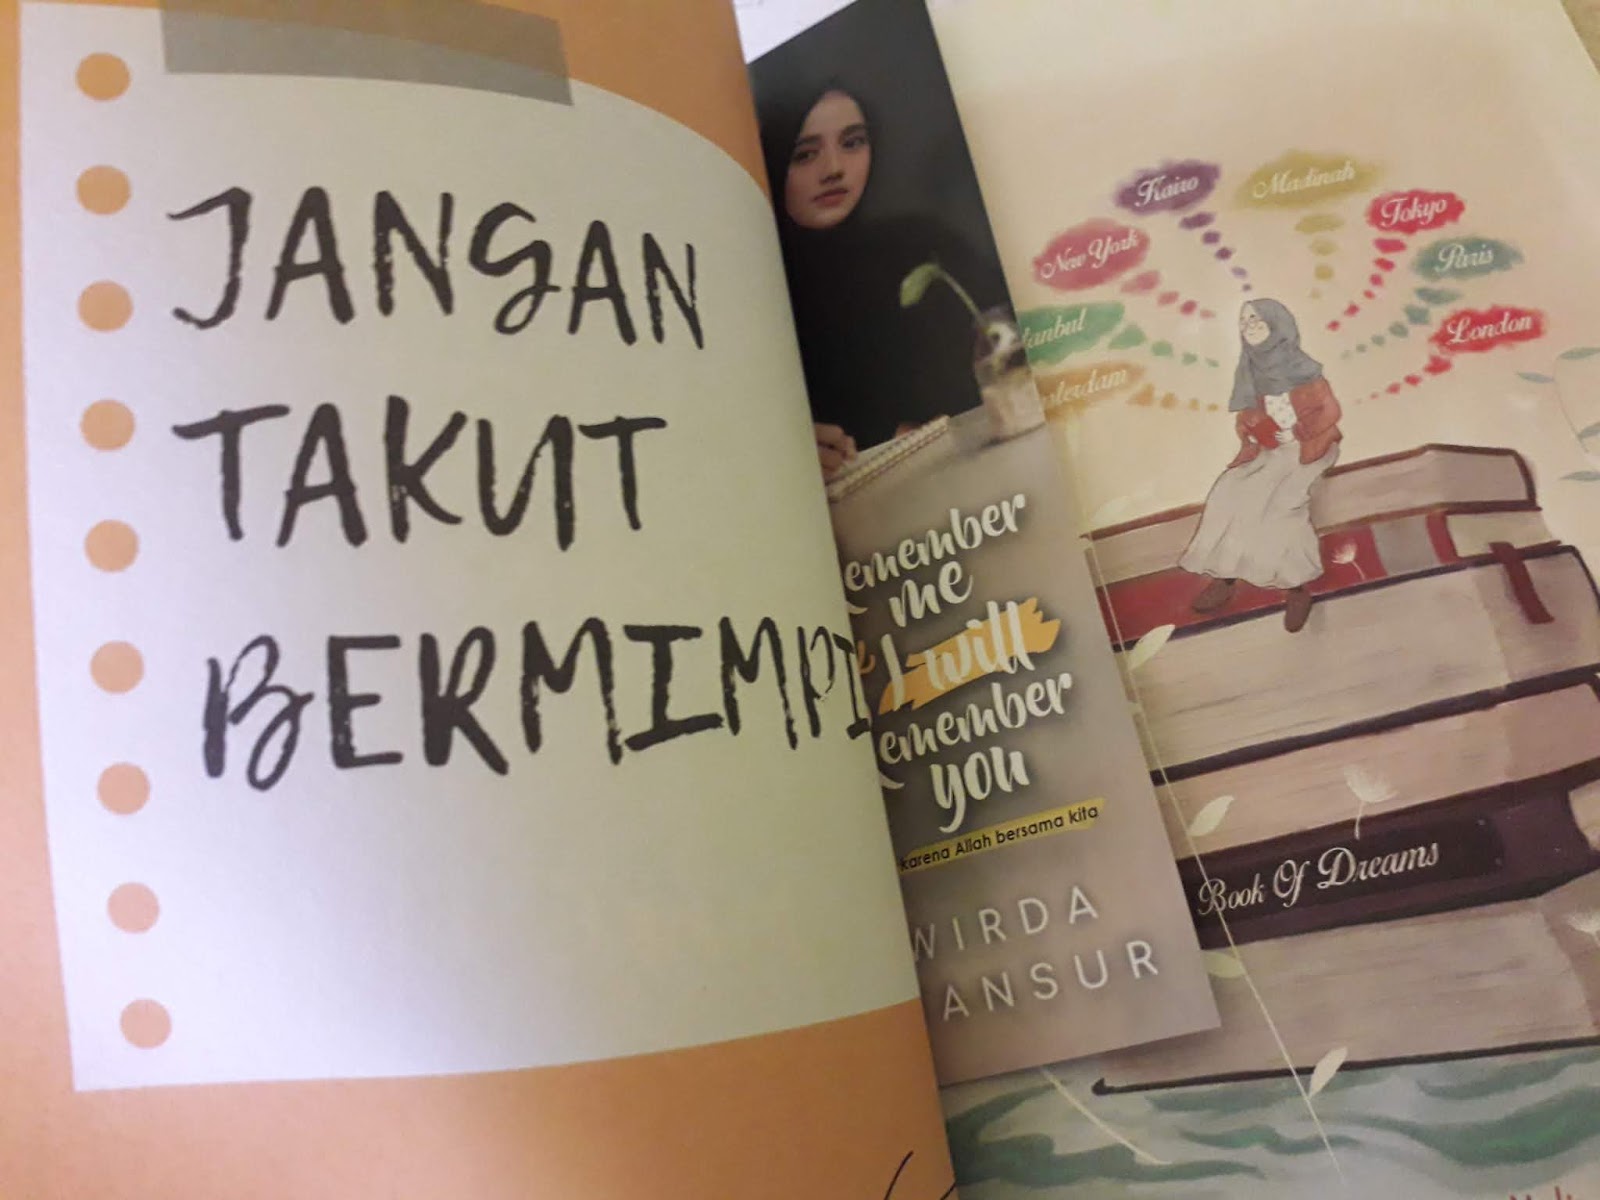 JANGAN
TAKUT
BERMIMPI
Remember
me
I will
Remember
you
karena Allah bersama kita
WIRDA
ANSUR
Kairo
Madinah
Tokyo
New York
Paris
anbul
London
sterdam
Book Of Dreams